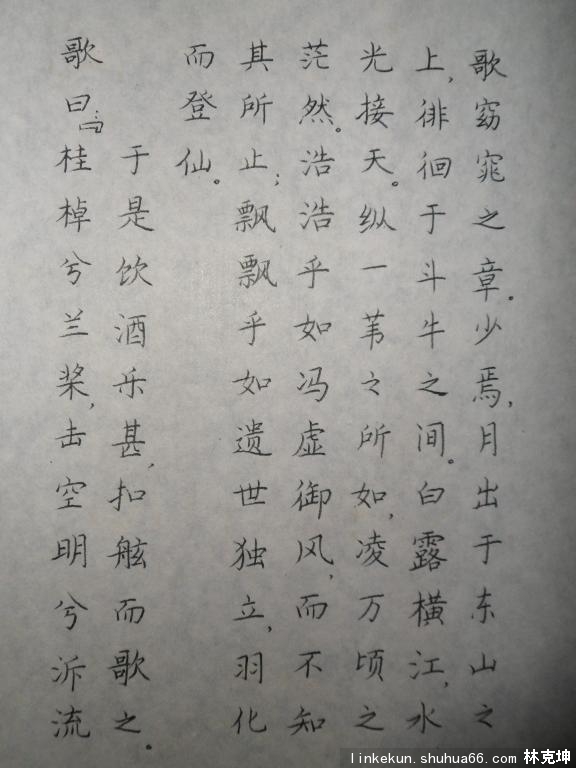 歌窈窕之章。少焉，月出于东山之
上，徘徊于斗牛之间。白露横江，水
光接天。纵一苇之所如，凌万顷之
茫然。浩浩乎如冯虚御风，而不知
其所止；飘飘乎如遗世独立，羽化
而登仙。
于是饮酒乐甚，扣舷而歌之。
歌曰：“桂棹兮兰桨，击空明兮泝流
linkekun.shuhua66.com 林克坤